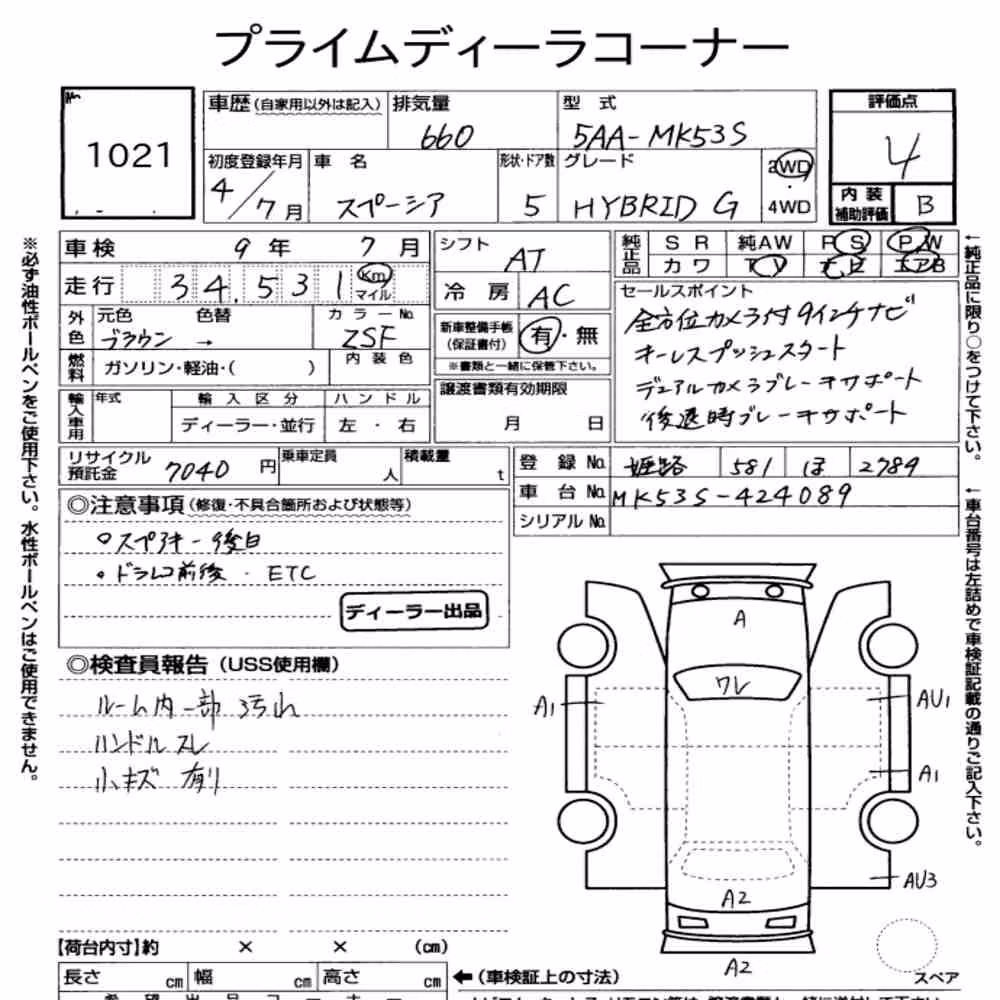 プライムディーラコーナー
1021
車歴(自家用以外は記入)
排気量
660
型 式
5AA-MK53S
評価点
4
内装補助評価
B
初度登録年月
4/7月
車 名
スペーシア
形状・ドア数
5
グレード
HYBRID G
2WD
・
4WD
車検 9年 7月
走行 34,531 Km マイル
外色
元色
ブラウン →
色替
カラーNo
ZSF
燃料
ガソリン・軽油・( )
内装色
輸入車用
年式
輸入区分
ディーラー・並行
ハンドル
左・右
シフト
AT
冷房
AC
新車整備手帳(保証書付)
有・無
※書類と一緒に保管下さい。
譲渡書類有効期限
月 日
純正品
SR 純AW PS PW
カワ TV ナビ エアB
セールスポイント
全方位カメラ付9インチナビ
キーレスプッシュスタート
デュアルカメラブレーキサポート
後退時ブレーキサポート
リサイクル預託金
7040円
乗車定員
人
積載量
t
登録No 姫路 581 ほ 2784
車台No MK53S-424089
シリアルNo
◎注意事項(修復・不具合箇所および状態等)
○スペアキー後日
・ドラレコ前後・ETC
ディーラー出品
◎検査員報告(USS使用欄)
ルーム内一部汚れ
ハンドルスレ
小キズ有り
A
ワレ
A1
AU1
A1
AU3
A2
A2
スペア
【荷台内寸】約 × × (cm)
長さ cm 幅 cm 高さ cm
←(車検証上の寸法)
※必ず油性ボールペンをご使用下さい。水性ボールペンはご使用できません。
←純正品に限り○をつけて下さい。
←車台番号は左詰めで車検証記載の通りご記入下さい。